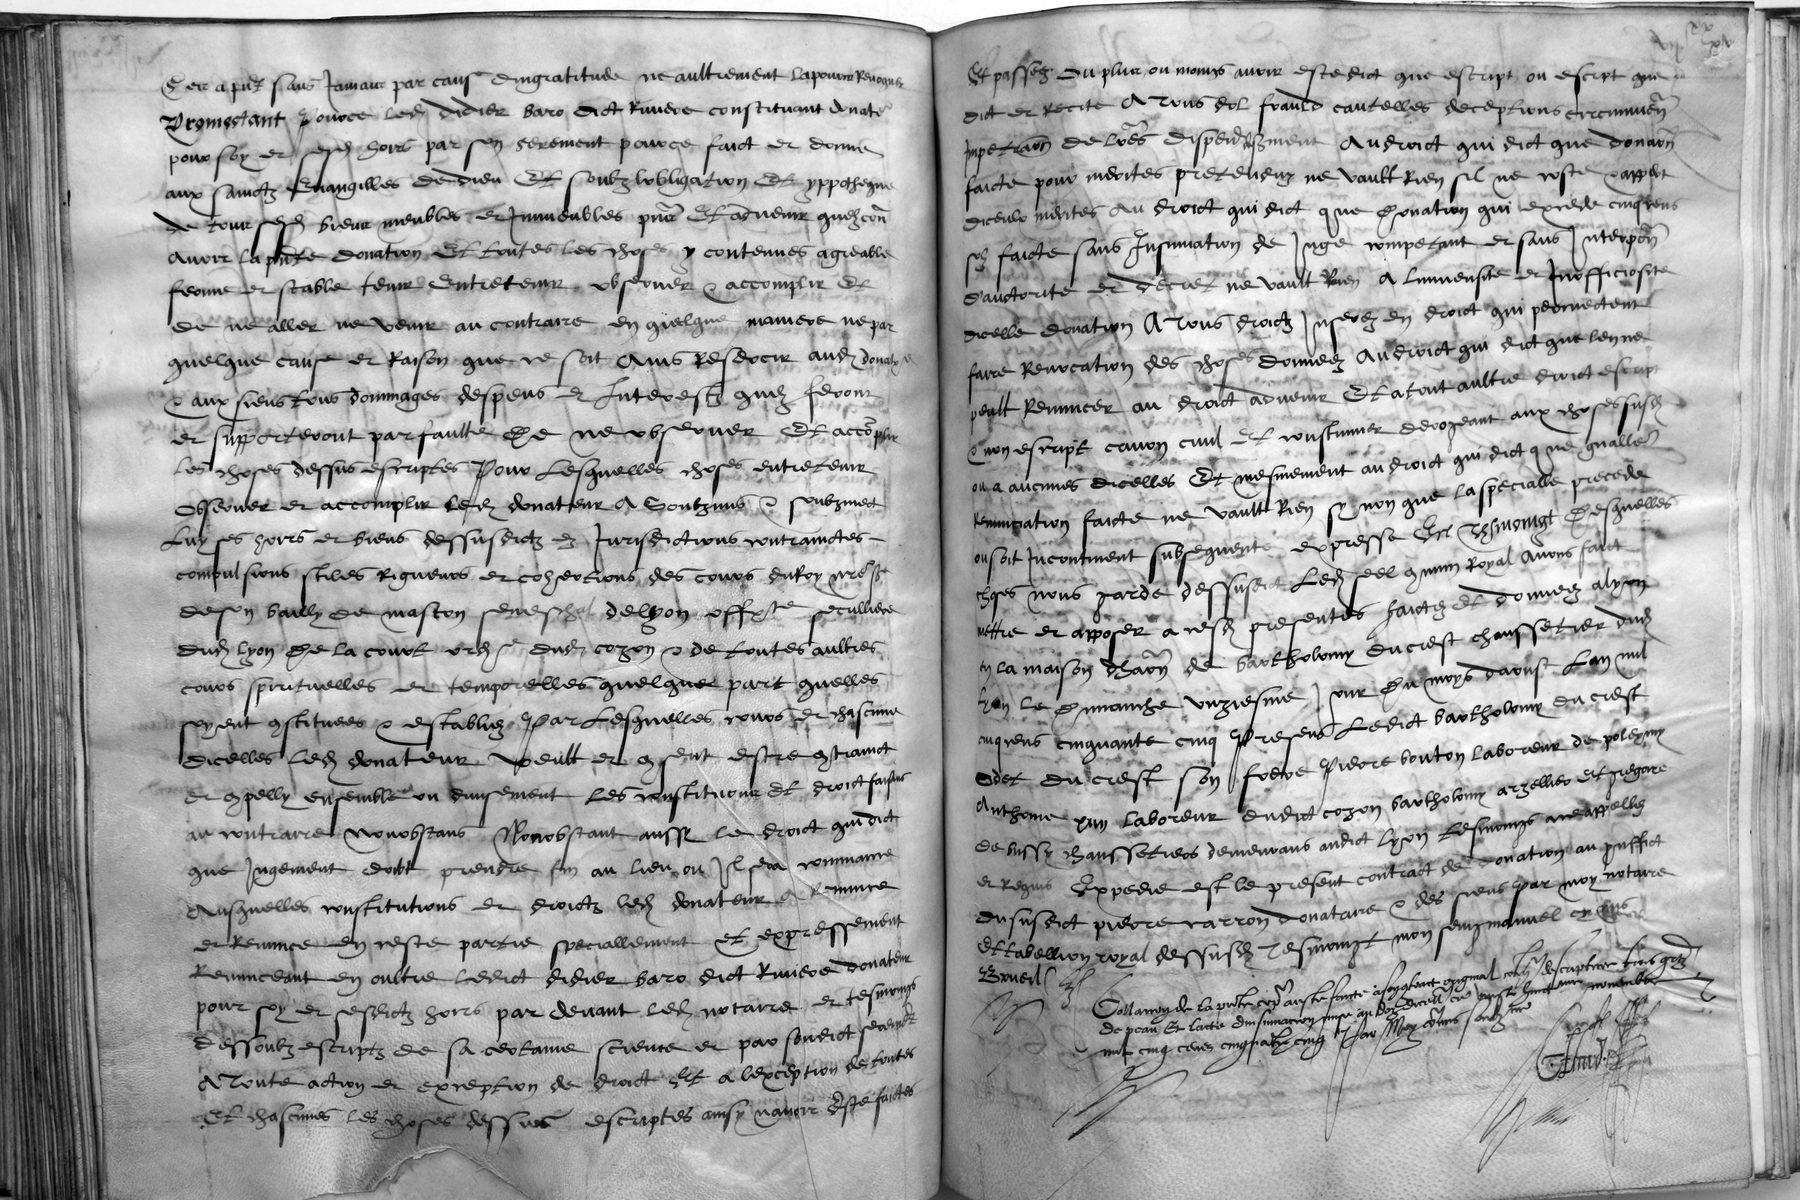 Et en apres sans Jamais par cause dingratitude ne aultrement la pouvoir Revoquer
Promectant Pource led didier baro dict Riviere constituant donateur
pour soy et sesd hoirs par son serement pource faict et donne
aux sainctz Evangilles de dieu Et soubz lobligation Et yppotheque
de tous sesd biens meubles et Immeubles pntz Et advenir quelzconq
Avoir la pnte donation Et toutes les choses y contenues agreable
ferme et stable tenir entretenir observer & accomplir Et
de ne aller ne venir au contraire en quelque maniere ne par
quelque cause et Raison que ce soit Ains Resercir aud donataire
& aux siens tous dommages despens et Interestz quilz feront
et supporteront par faulte de ne observer Et accomplir
les choses dessus escriptes Pour Lesquelles choses entretenir
observer et accomplir led donateur A Soubzmis & soubzmect
Luy ses hoirs et biens dessusdictz es Jurisdictions contrainctes
compulsions stilles Rigueurs et cohections des cours du Roy nre sr
de son bailly de mascon seneschal de lyon seculliere
dud lyon de la court dud cozon & de toutes aultres
cours spirituelles et temporelles quelque part quelles
soyent constituees & establies Par Lesquelles cours et chascune
dicelles led donateur veult et consent estre contrainct
et compelly ensemble ou divisement les constitutions et droict faisans
au contraire nonobstans Nonobstant aussi le droict qui dict
que Jugement doibt prendre fin au lieu ou Il sera commance
Ausquelles constitutions et droictz led donateur a Renonce
et Renonce en ceste partie speciallement et expressement
Renunceant en oultre ledict didier baro dict Riviere donateur
pour soy et sesdictz hoirs par devant led notaire et tesmoings
dessoubz escriptz de sa certaine science et par sondict serement
A toute action et exception de droict Et a lexception de toutes
Et chascunes les choses dessus escriptes ainsy navoir este faictes
Et passees Ou plus ou moings avoir este dict que escript ou escript que
dict et Recite A tous dol frauld cautelles deceptions circumvenons
Impetraon de lres dispend Au droict qui dict que donaon
faicte pour merites pretenduz ne vault Rien sil ne coste &
diceulx merites Au droict qui dict que donation qui excede cinq cens
solz faicte sans Insinuation de Juge competant et sans Interposon
dauctorite et decret ne vault Rien A limmensite et Inofficiosite
dicelle donation A tous droictz Inserez en droict qui permectent
faire Revocation des choses donnees Au droict qui dict que len ne
peult Renuncer au droict advenir Et a tout aultre droict escript
& non escript canon civil et constumier derogeant aux choses susd
ou a aucunes dicelles Et mesmement au droict qui dict que gnalle
Renunciation faicte ne vault Rien sy non que la specialle precede
ou soit Incontinent subsequente expresse En tesmoingt Desquelles
choses nous garde dessusdict Led seel commun Royal Avons faict
mettre et apposer a cesd presentes faictes et donnees a lyon
en la maison dhaon de bartholomy du crest chaussetier dud
lyon le dimanche unziesme Jour du moys daoust Lan mil
cinq cens cinquante cinq Presens Ledict bartholomy du crest
odet du crest son frere Pierre bouton laboreur de poleymy
Anthoine laboreur dudict cozon bartholomy arzellier et gregore
de bussy chaussetiers demeurans audict lyon tesmoings ad ce appellez
et Requis Expedie est le present contract de donation au proffict
du susdict pierre carron donataire & des siens Par moy notaire
Et tabellion royal dessusd Tesmoingt mon seing manuel cy mis
Breul
Collation de la pnte coppie a este faicte a son orignal
de peau Et lacte dinsinuacion mise au doz dicelle novembre
mil cinq cens cinquante cinq Par Moy